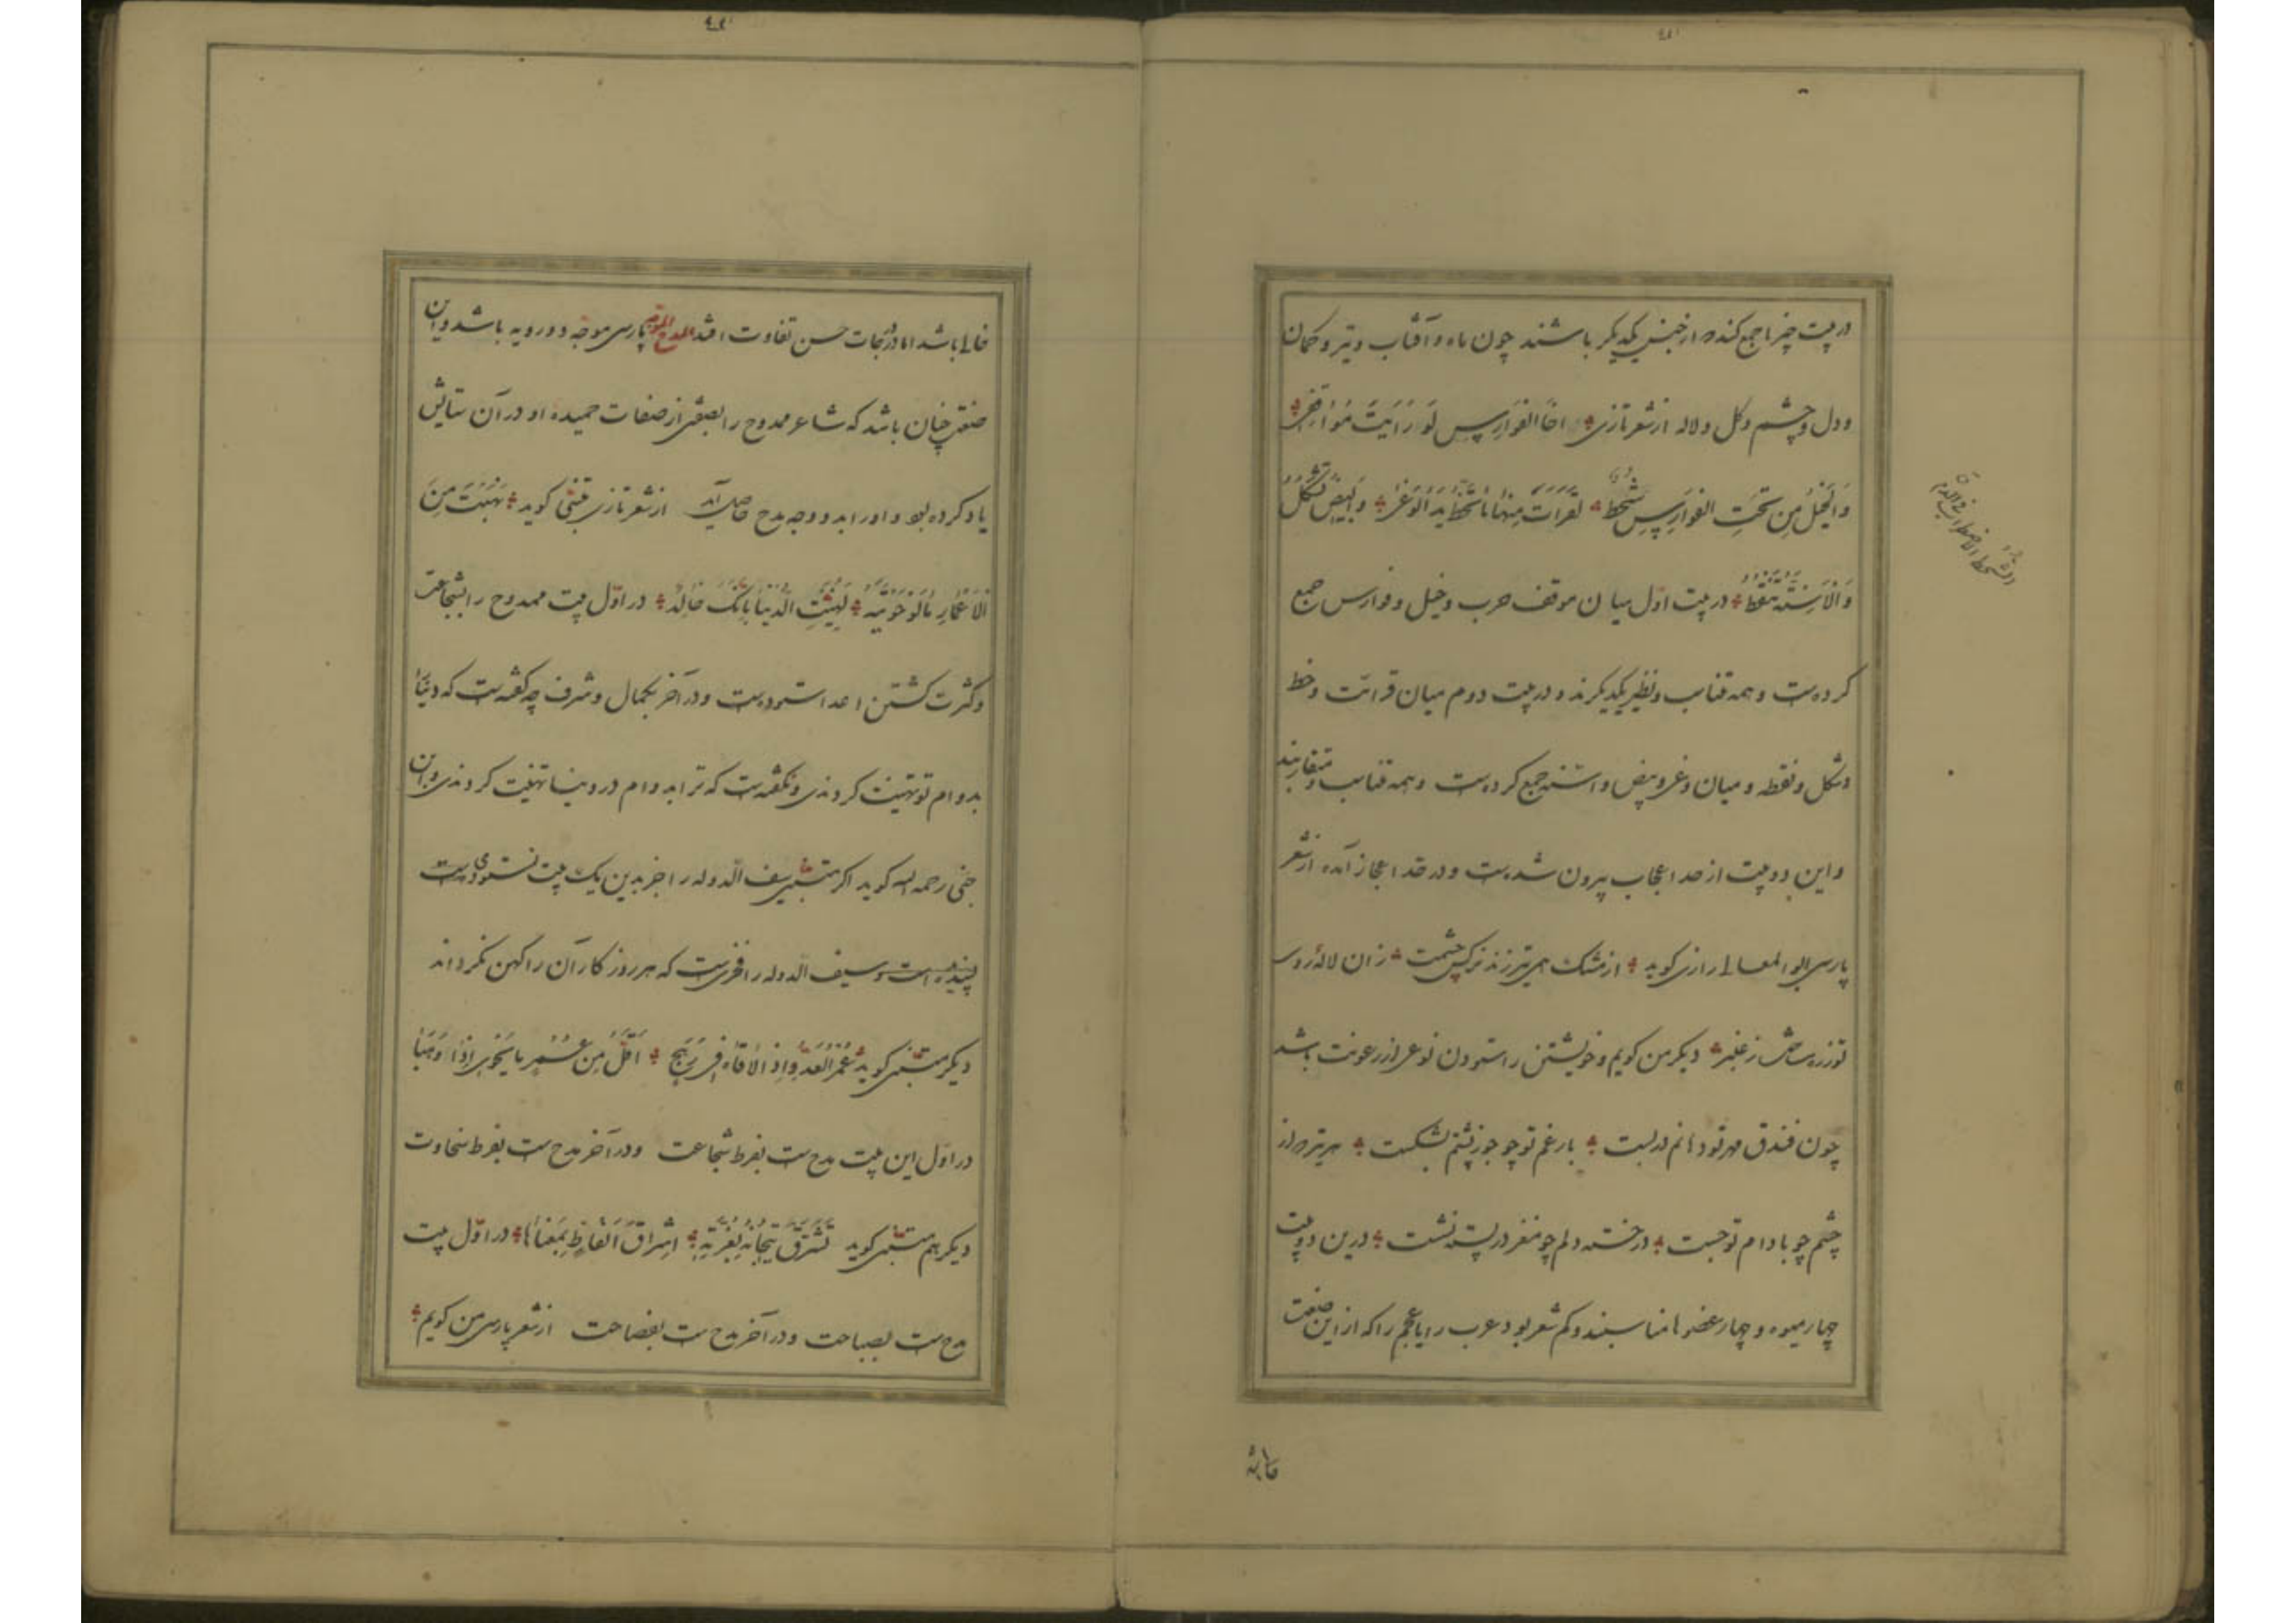 در بیت چیزها جمع کند که از جنس یکدیگر باشند چون ماه و آفتاب و تیر و کمان
و دل و چشم و گل و لاله از شعر تازی اخا الفوارس لو رایت مواقفی
والخیل من تحت الفوارس تنحط لقرات منها ما تخط ید الوغی والبیض تشکل
والاسنة تنقط در بیت اول میان موقف حرب و خیل و فوارس جمع
کرده‌ست و همه متناسب و نظیر یکدیگرند و در بیت دوم میان قراءت و خط
و شکل و نقطه و میان وغی و بیض و اسنه جمع کرده‌ست و همه متناسب و متقاربند
و این دو بیت از حد اعجاب بیرون شده‌ست و در حد اعجاز آمده از شعر
پارسی ابو المعالی رازی گوید از مشک همی تیر زند نرگس چشمت زان لاله روی
تو زره ساخت ز عنبر دیگر من گویم و خویشتن را ستودن نوعی از رعونت باشد
چون فندق مهر تو دهانم در بست بار غم تو چو جوز پشتم بشکست هر تیر که از
چشم چو بادام تو جست در خسته دلم چو مغز در پسته نشست درین دو بیت
چهار میوه و چهار عضو متناسبند و کم شعر بود عرب را یا عجم را که از این صنعت
خالی باشد اما در درجات حسن تفاوت افتد المدح الموجه پارسی موجه دورویه باشد و این
صنعت چنان باشد که شاعر ممدوح را بصفتی از صفات حمیده او در آن ستایش
یاد کرده بود و او را بدو وجه مدح حاصل آید از شعر تازی متنبی گوید نهبت من
الاعمار ما لو حویته لهنئت الدنیا بانک خالد در اول بیت ممدوح را بشجاعت
و کثرت کشتن اعدا ستوده‌ست و در آخر بکمال و شرف چه گفته‌ست که دنیا
بدوام تو تهنیت کردندی و نگفته‌ست که ترا بدوام در دنیا تهنیت کردندی و ابن
جنی رحمه الله گوید اگر متنبی سیف الدوله را جز بدین یک بیت نستودی
پسنده است و سیف الدوله را فخریست که هر روزگار آن را کهن نگرداند
دیگر متنبی گوید عمر العدو اذا لاقاه فی رهج اقل من عمر ما یحوی اذا وهبا
در اول این بیت مدح‌ست بفرط شجاعت و در آخر مدح‌ست بفرط سخاوت
دیگر هم متنبی گوید تشرق تیجانه بغرته اشراق الفاظه بمعناها در اول بیت
مدح‌ست بصباحت و در آخر مدح‌ست بفصاحت از شعر پارسی من گویم